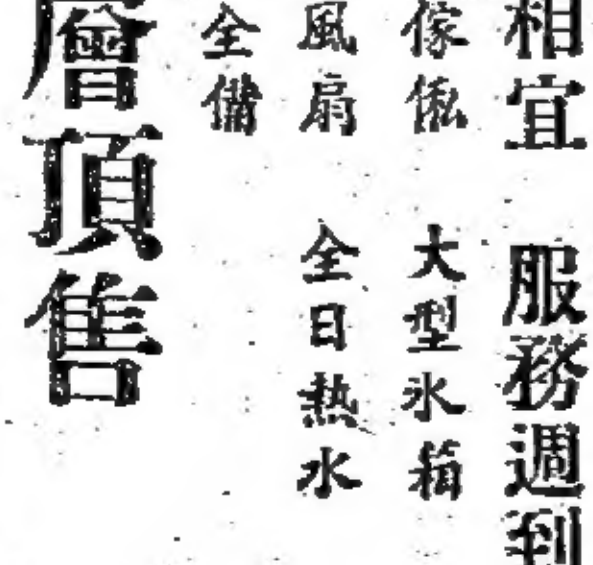 相宜　服務週到
傢俬　大型氷箱
風扇　全日熱水
全備
層頂售